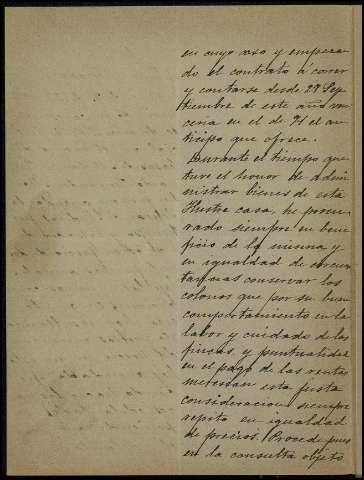 en cuyo caso y empezan
do el contrato á correr
y contarse desde 29 Sep
tiembre de este año ven
ceria en el de 71 el an
ticipo que ofrece.
Durante el tiempo que
tuve el honor de admi
nistrar bienes de esta
Ilustre casa, he procu
rado siempre en bene
ficio de la misma, y
en igualdad de circuns
tancias conservar los
colonos que por su buen
comportamiento en la
labor y cuidado de las
fincas, y puntualidad
en el pago de las rentas
merecian esta justa
consideracion siempre
repito en igualdad
de precios. Procede pues
en la consulta objeto